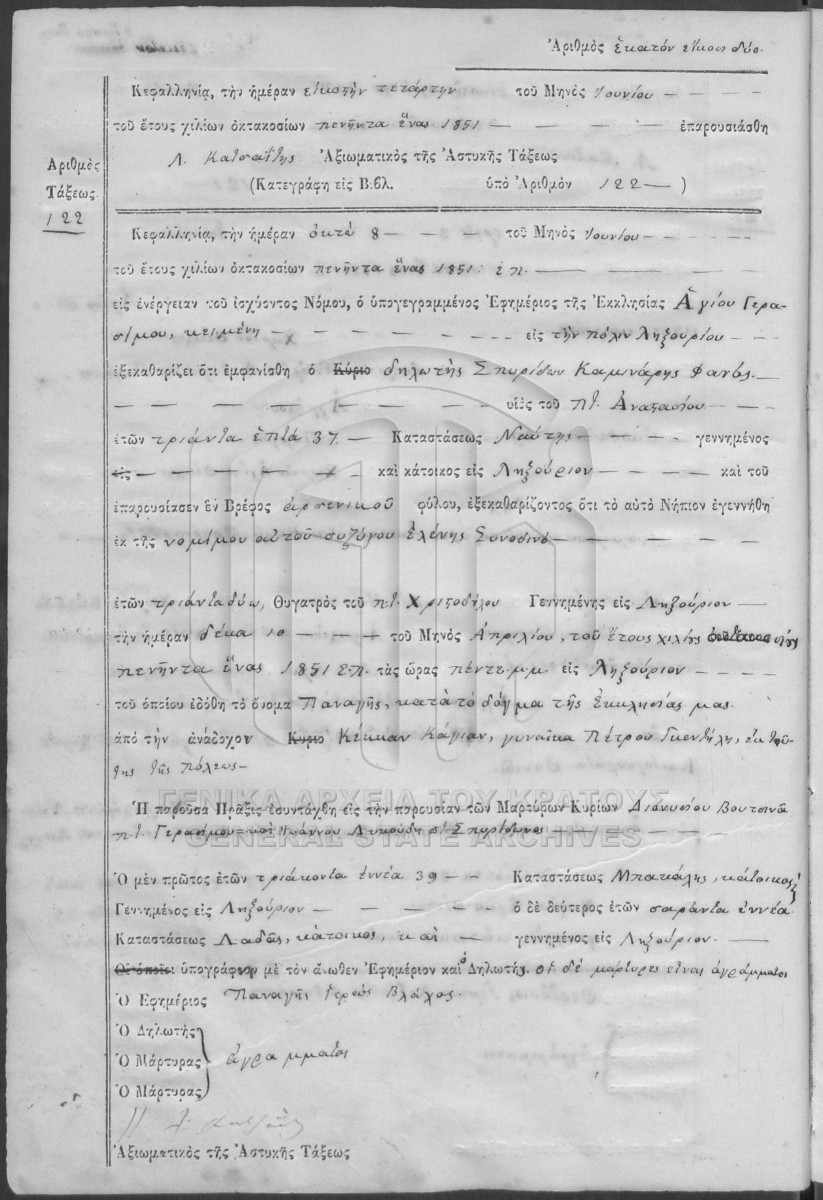 Ἀριθμὸς ἑκατόν εἴκοσι δύο.
Κεφαλληνίᾳ, τὴν ἡμέραν εἰκοστὴν τετάρτην τοῦ Μηνὸς Ἰουνίου
τοῦ ἔτους χιλίων ὀκτακοσίων πενῆντα ἕνας 1851 ἐπαρουσιάσθη
Λ. Κατσαΐτης Ἀξιωματικὸς τῆς Ἀστυκῆς Τάξεως
(Κατεγράφη εἰς Βιβλ. ὑπὸ Ἀριθμὸν 122 — )
Ἀριθμὸς
Τάξεως
122
Κεφαλληνίᾳ, τὴν ἡμέραν ὀκτώ 8 τοῦ Μηνὸς Ἰουνίου
τοῦ ἔτους χιλίων ὀκτακοσίων πενῆντα ἕνας 1851: ἔ.π.
εἰς ἐνέργειαν τοῦ ἰσχύοντος Νόμου, ὁ ὑπογεγραμμένος Ἐφημέριος τῆς Ἐκκλησίας Ἁγίου Γερα-
σίμου, κειμένη εἰς τὴν πόλιν Ληξουρίου
ἐξεκαθαρίζει ὅτι ἐμφανίσθη ὁ Κύριο δηλωτὴς Σπυρίδων Καμινάρης Φανὸς
υἱὸς τοῦ πτ. Ἀναστασίου
ἐτῶν τριάντα ἑπτά 37 — Καταστάσεως Ναύτης γεννημένος
εἰς καὶ κάτοικος εἰς Ληξούριον καὶ τοῦ
ἐπαρουσίασεν ἓν Βρέφος ἀρσενικοῦ φύλου, ἐξεκαθαρίζοντος ὅτι τὸ αὐτὸ Νήπιον ἐγεννήθη
ἐκ τῆς νομίμου αὐτοῦ συζύγου Ἑλένης Συνοδινοῦ
ἐτῶν τριάντα δύω, Θυγατρὸς τοῦ πτ. Χριστοδήλου Γεννημένης εἰς Ληξούριον
τὴν ἡμέραν δέκα 10 τοῦ Μηνὸς Ἀπριλίου, τοῦ ἔτους χιλίων
πενῆντα ἕνας 1851 ἔ.π. τὰς ὥρας πέντε μ.μ εἰς Ληξούριον
τοῦ ὁποίου ἐδόθη τὸ ὄνομα Παναγῆς, κατὰ τὸ δόγμα τῆς ἐκκλησίας μας.
ἀπὸ τὴν ἀνάδοχον Κυριο Κέκκαν Κάγιαν, γυναῖκα Πέτρου Γκεντήλη, ἐκ ταύ-
της τῆς πόλεως
Ἡ παροῦσα Πρᾶξις ἐσυντάχθη εἰς τὴν παρουσίαν τῶν Μαρτύρων Κυρίων Διονυσίου Βουτσινᾶ
πτ. Γερασίμου καὶ Ἰωάννου Λυκούδη πτ. Σπυρίδωνος
Ὁ μὲν πρῶτος ἐτῶν τριάκοντα ἐννέα 39 Καταστάσεως Μπακάλης, κάτοικος
Γεννημένος εἰς Ληξούριον ὁ δὲ δεύτερος ἐτῶν σαράντα ἐννέα
Καταστάσεως Λαδᾶς, κάτοικος, καὶ γεννημένος εἰς Ληξούριον.
Οἱ ὁποῖοι ὑπογράφουν μὲ τὸν ἄνωθεν Ἐφημέριον καὶ ὁ Δηλωτής, οἱ δέ μάρτυρες εἶναι ἀγράμματοι
Ὁ Ἐφημέριος Παναγῆς Ἱερεύς Βλάχος.
Ὁ Δηλωτὴς
Ὁ Μάρτυρας ἀγράμματοι
Ὁ Μάρτυρας
Ἀξιωματικὸς τῆς Ἀστυκῆς Τάξεως
ΓΕΝΙΚΑ ΑΡΧΕΙΑ ΤΟΥ ΚΡΑΤΟΥΣ
GENERAL STATE ARCHIVES